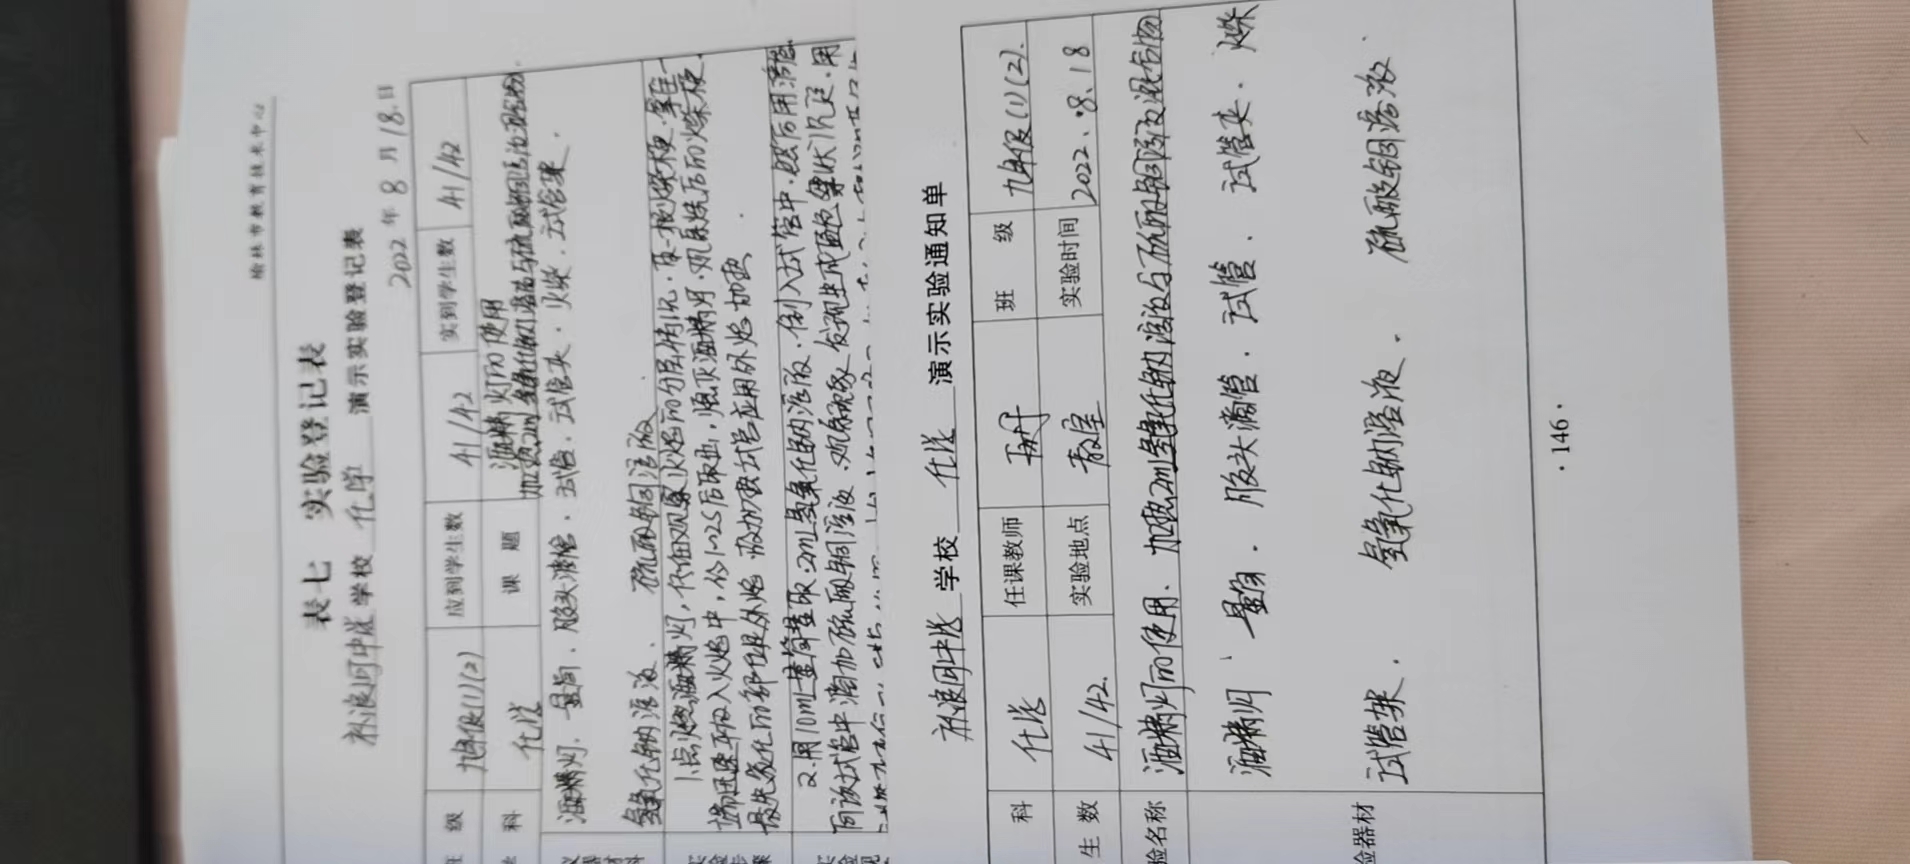 榆林市教育技术中心
表七 实验登记表
补浪河中学 学校 化学 演示实验登记表
2022 年 8 月 18 日
级 九年级(1)(2) 应到学生数 41/42 实到学生数 41/42
科 化学 课题 酒精灯的使用
加热2ml氢氧化钠溶液与硫酸铜
酒精灯、量筒、胶头滴管、试管、试管夹、火柴、试管架.
氢氧化钠溶液. 硫酸铜溶液
1.点燃酒精灯,仔细观察火焰的分层情况.取一根火柴梗.拿住一
端迅速平放入火焰中,约1-2S后取出,熄灭酒精灯.观察烧后的火柴梗.
最先炭化的部位是外焰 被加热试管应用外焰加热.
2.用10ml量筒量取2ml氢氧化钠溶液.倒入试管中.然后用滴管
向该试管中滴加硫酸铜溶液.观察现象 发现生成蓝色絮状沉淀.用
补浪河中学 学校 化学 演示实验通知单
科 化学 任课教师 班级 九年级(1)(2).
生数 41/42. 实验地点 教室 实验时间 2022.8.18
验名称 酒精灯的使用. 加热2ml氢氧化钠溶液与硫酸铜溶液混合物
酒精灯、量筒. 胶头滴管. 试管. 试管夹. 火柴
验器材 试管架. 氢氧化钠溶液. 硫酸铜溶液.
·146·